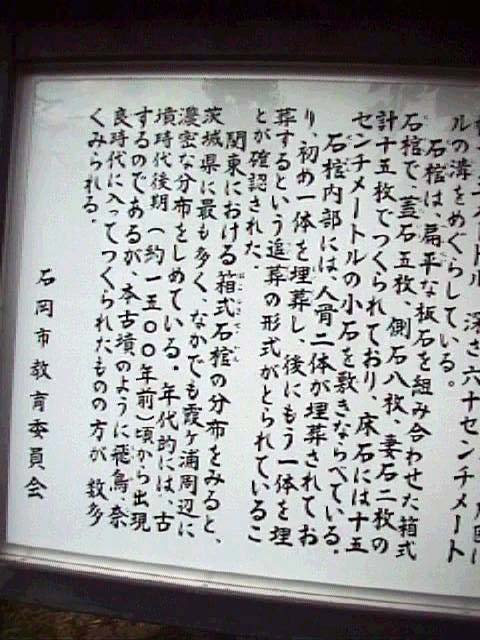 ルの溝をめぐらしている。
石棺は、扁平な板石を組み合わせた箱式
石棺で、蓋石五枚、側石八枚、妻石二枚の
計十五枚でつくられており、床石には十五
センチメートルの小石を敷きならべている。
石棺内部には、人骨二体が埋葬されてお
り、初め一体を埋葬し、後にもう一体を埋
葬するという追葬の形式がとられているこ
とが確認された。
関東における箱式石棺の分布をみると、
茨城県に最も多く、なかでも霞ヶ浦周辺に
濃密な分布をしめている。年代的には、古
墳時代後期(約一五〇〇年前)頃から出現
するのであるが、本古墳のように飛鳥・奈
良時代に入ってつくられたものの方が数多
くみられる。
石岡市教育委員会